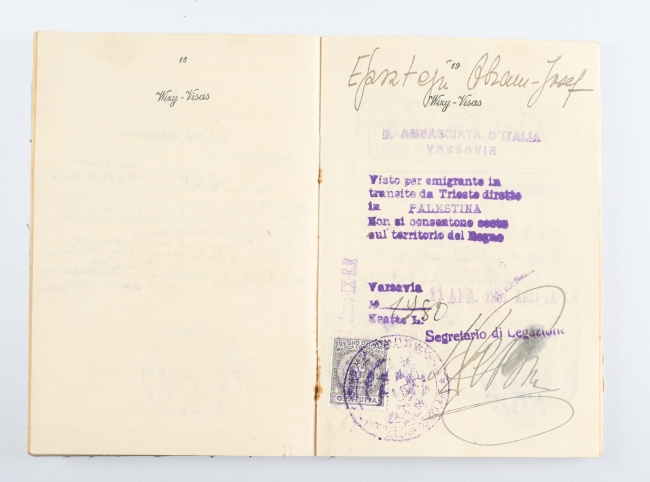 18
Wizy-Visas
Epsztejn Abram-Josef
19
Wizy-Visas
R. AMBASCIATA D'ITALIA
VARSAVIA
Visto per emigrante in
transito da Trieste diretto
in PALESTINA
Non si consentono soste
sul territorio del Regno
Varsavia 11 APR.
No 1480
Esatte L.
Segretario di Legazione
GRATUITA